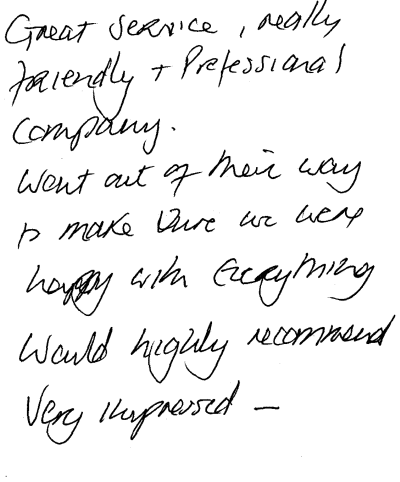 Great service, really
friendly + Professional
company.
Went out of their way
to make sure we were
happy with Everything
Would highly recommend
Very impressed —